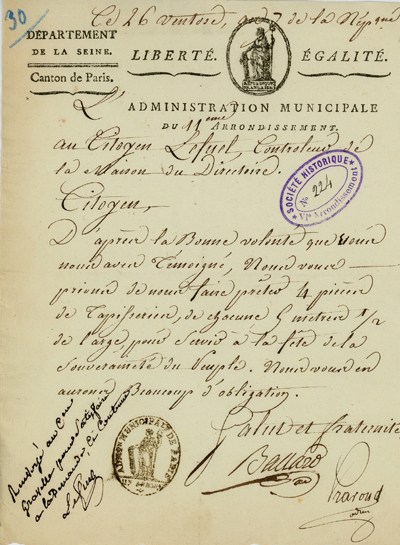 30
Ce 26 ventose, an 7 de la Rép.que
DÉPARTEMENT
DE LA SEINE.
Canton de Paris.
LIBERTÉ.
ÉGALITÉ.
RÉPUBLIQUE
FRANÇAISE
L'ADMINISTRATION MUNICIPALE
DU 11eme ARRONDISSEMENT.
au Citoyen Lefuel, Controleur de
la Maison du Directoire.
SOCIÉTÉ HISTORIQUE
No 224
VIe Arrondissement
Citoyen,
D'après la Bonne volonté que vous
nous avez Témoigné, Nous vous
prions de nous faire prêter 4 pièces
de Tapisseries, de chacune 5 metres 1/2
de large, pour servir à la fête de la
souveraineté du Peuple. Nous vous en
aurons Beaucoup d'obligation.
Salut et fraternité
Renvoyé au Cen
pour satisfaire
à la Demande, Ce
Lefuel
ADMON MUNICIPALE DE PARIS